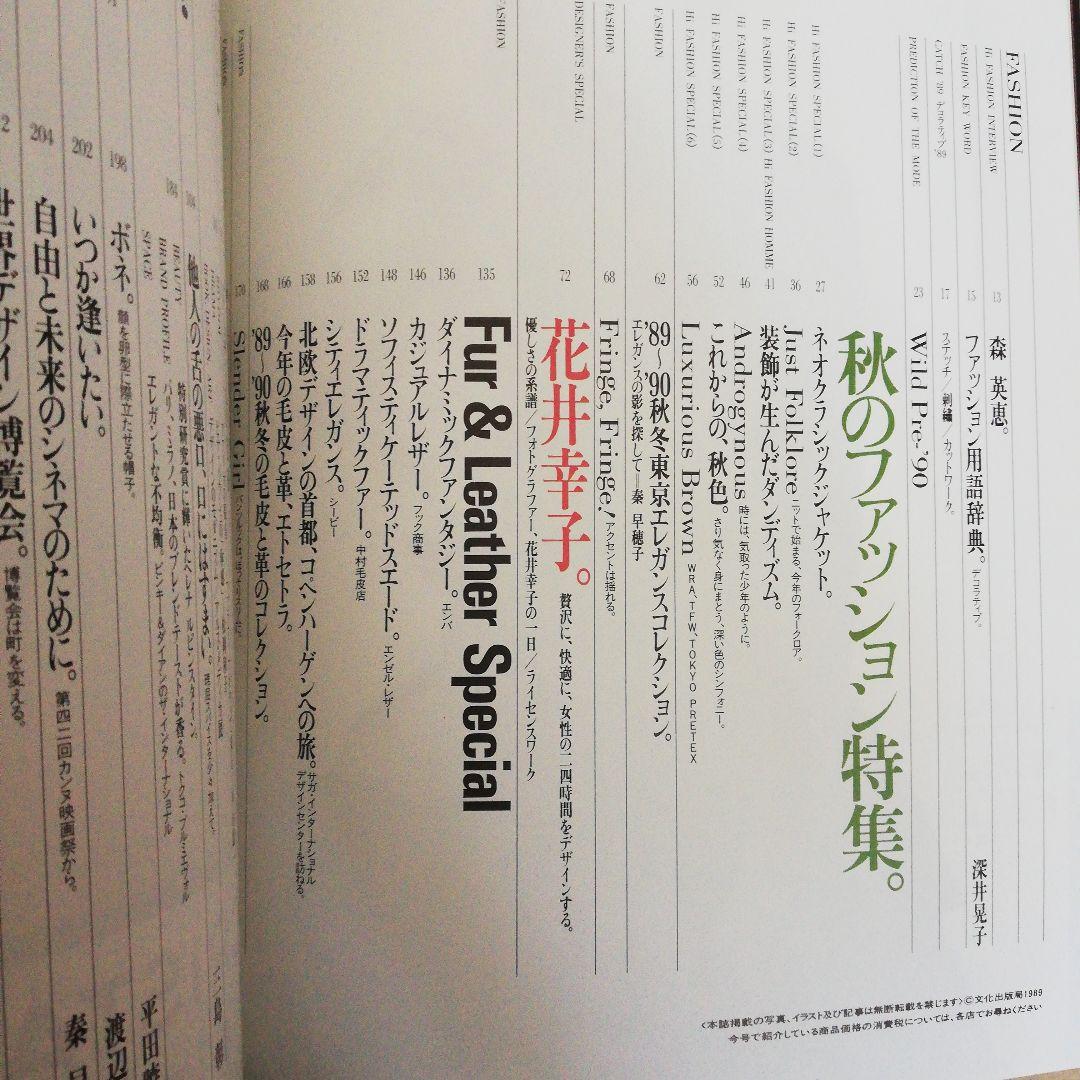 FASHION
Hi FASHION INTERVIEW 13 森 英恵。
FASHION KEY WORD 15 ファッション用語辞典。デコラティブ。 深井晃子
CATCH '89 デコラティブ'89 17 ステッチ／刺繍／カットワーク。
PREDICTION OF THE MODE 23 Wild Pre-'90
秋のファッション特集。
Hi FASHION SPECIAL(1) 27 ネオクラシックジャケット。
Hi FASHION SPECIAL(2) 36 Just Folklore ニットで始まる、今年のフォークロア。
Hi FASHION SPECIAL(3) Hi FASHION HOMME 41 装飾が生んだダンディズム。
Hi FASHION SPECIAL(4) 46 Androgynous 時には、気取った少年のように。
Hi FASHION SPECIAL(5) 52 これからの、秋色。さり気なく身にまとう、深い色のシンフォニー。
Hi FASHION SPECIAL(6) 56 Luxurious Brown WRA、TFW、TOKYO PRETEX
FASHION 62 '89〜'90秋冬東京エレガンスコレクション。
エレガンスの影を探して＝秦 早穂子
FASHION 68 Fringe, Fringe! アクセントは揺れる。
DESIGNER'S SPECIAL 72 花井幸子。贅沢に、快適に、女性の二四時間をデザインする。
優しさの系譜／フォトグラファー、花井幸子の一日／ライセンスワーク
FASHION 135 Fur & Leather Special
136 ダイナミックファンタジー。エンバ
146 カジュアルレザー。フック商事
148 ソフィスティケーテッドスエード。エンゼル・レザー
152 ドラマティックファー。中村毛皮店
156 シティエレガンス。シービー
158 北欧デザインの首都、コペンハーゲンへの旅。サガ・インターナショナル
デザインセンターを訪ねる。
166 今年の毛皮と革、エトセトラ。
168 '89〜'90秋冬の毛皮と革のコレクション。
FASHION 170 Slender Girl
他人の舌の悪口、口にはすまい。
BEAUTY
BRAND PROFILE パリ、ミラノ、日本のブレンドテーストが香る。
SPACE エレガントな不均衡
198 ボネ。顔を卵型に際立たせる帽子。
202 いつか逢いたい。
204 自由と未来のシネマのために。第四二回カンヌ映画祭から。
世界デザイン博覧会。博覧会は町を変える。
平田
渡辺
秦
〈本誌掲載の写真、イラスト及び記事は無断転載を禁じます〉©文化出版局1989
今号で紹介している商品価格の消費税については、各店でお尋ねください